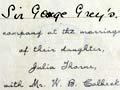 Sir George Grey's.
company at the marriage
of their daughter,
Julia Thorne,
with Mr. W. B. Colbeck